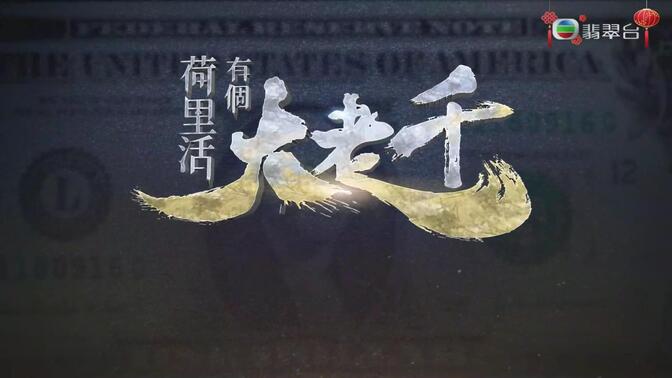 翡翠台
THE UNITED STATES OF AMERICA
荷里活
有個
大老千
L
12